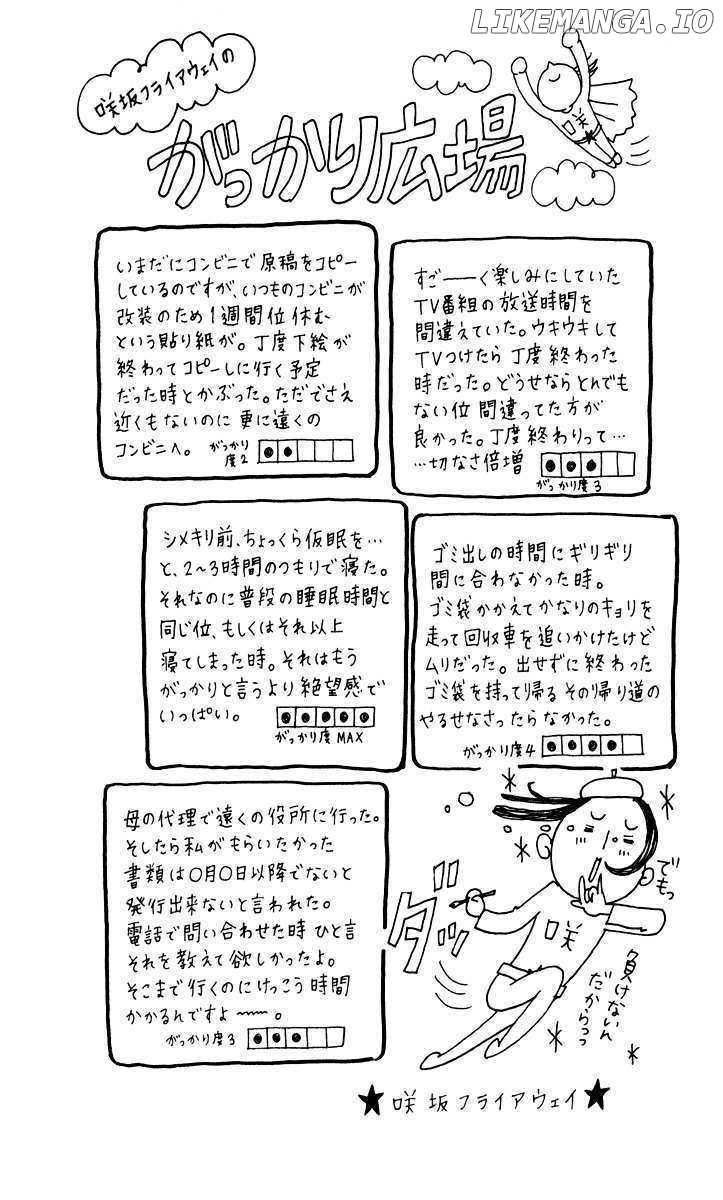 LIKEMANGA.IO
咲坂フライアウェイの
がっかり広場
咲
いまだにコンビニで原稿をコピー
しているのですが、いつものコンビニが
改装のため1週間位休む
という貼り紙が。丁度下絵が
終わってコピーしに行く予定
だった時とかぶった。ただでさえ
近くもないのに更に遠くの
コンビニへ。
がっかり
度2
すご——く楽しみにしていた
TV番組の放送時間を
間違えていた。ウキウキして
TVつけたら丁度終わった
時だった。どうせならとんでも
ない位間違ってた方が
良かった。丁度終わりって…
…切なさ倍増
がっかり度3
シメキリ前、ちょっくら仮眠を…
と、2〜3時間のつもりで寝た。
それなのに普段の睡眠時間と
同じ位、もしくはそれ以上
寝てしまった時。それはもう
がっかりと言うより絶望感で
いっぱい。
がっかり度MAX
ゴミ出しの時間にギリギリ
間に合わなかった時。
ゴミ袋かかえてかなりのキョリを
走って回収車を追いかけたけど
ムリだった。出せずに終わった
ゴミ袋を持って帰るその帰り道の
やるせなさったらなかった。
がっかり度4
母の代理で遠くの役所に行った。
そしたら私がもらいたかった
書類は○月○日以降でないと
発行出来ないと言われた。
電話で問い合わせた時ひと言
それを教えて欲しかったよ。
そこまで行くのにけっこう時間
かかるんですよ〜〜。
がっかり度3
ダッ
咲
でもっ
負けないん
だからっっ
★咲坂フライアウェイ★